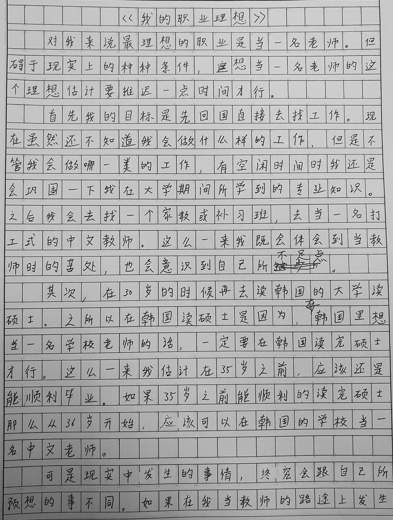 《我的职业理想》
对我来说最理想的职业是当一名老师。但
碍于现实上的种种条件，想当一名老师的这
个理想估计要推迟一点时间才行。
首先我的目标是先回国直接去找工作。现
在虽然还不知道我会做什么样的工作，但是不
管我会做哪一类的工作，有空闲时间时我还是
会巩固一下我在大学期间所学到的专业知识。
之后我会去找一个家教或补习班，去当一名打
工式的中文教师。这么一来我既会体会到当教
师时的苦处，也会意识到自己所不足点。
其次，在30岁的时候再去读韩国的大学读
硕士。之所以在韩国读硕士是因为在韩国里想
当一名学校老师的话，一定要在韩国读完硕士
才行。这么一来我估计在35岁之前，应该还是
能顺利毕业。如果35岁之前能顺利的读完硕士
那么从36岁开始，应该可以在韩国的学校当一
名中文老师。
可是现实中发生的事情，终究会跟自己所
预想的事不同。如果在我当教师的路途上发生